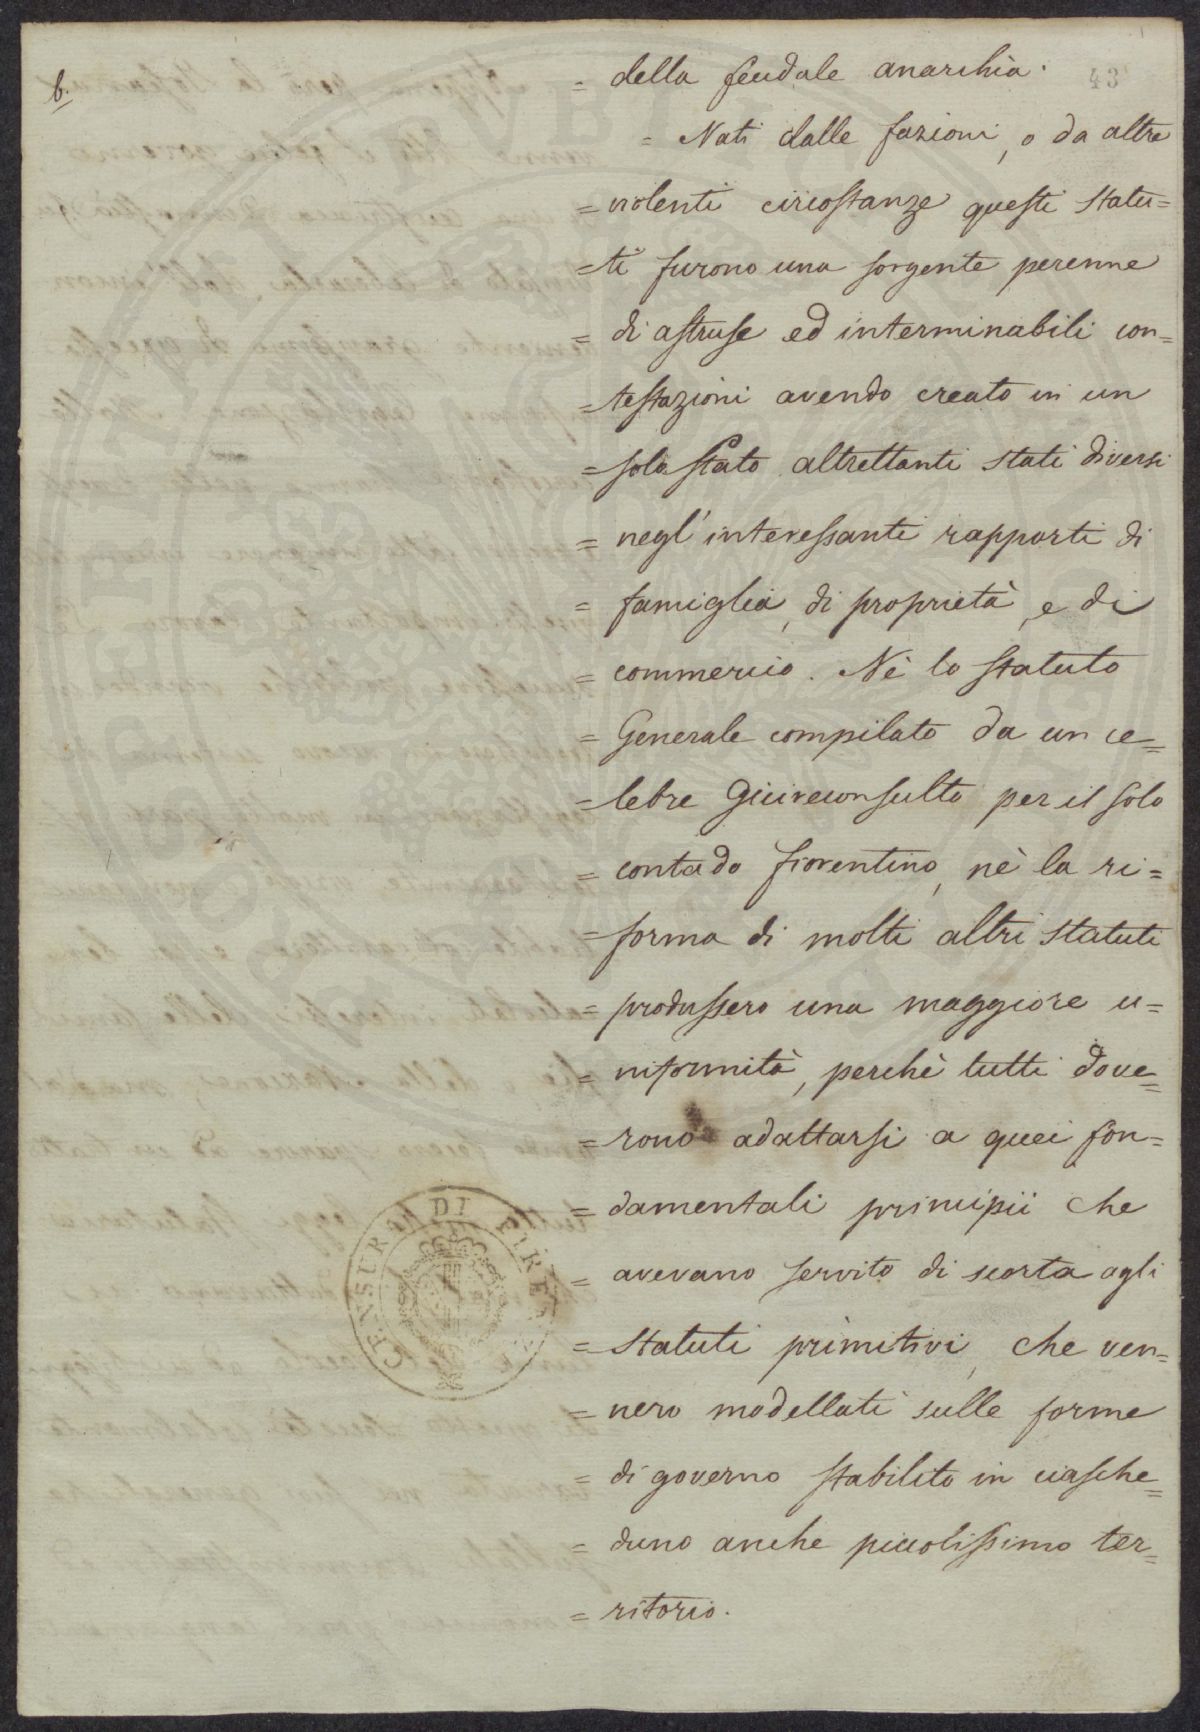 b.
43
= della feudale anarchia.
= Nati dalle fazioni, o da altre
= violenti circostanze questi statu=
= ti furono una sorgente perenne
= di astruse ed interminabili con=
= testazioni avendo creato in un
= solo Stato altrettanti stati diversi
= negl' interessanti rapporti di
= famiglia, di proprietà, e di
= commercio. Nè lo statuto
= Generale compilato da un ce=
= lebre Giureconsulto per il solo
= contado fiorentino, nè la ri=
= forma di molti altri statuti
= produssero una maggiore u=
= niformità, perchè tutti dove=
= rono adattarsi a quei fon=
= damentali principii che
= avevano servito di scorta agli
= statuti primitivi, che ven=
= nero modellati sulle forme
= di governo stabilito in ciasche=
= duno anche piccolissimo ter=
= ritorio.
CENSURA DI FIRENZE